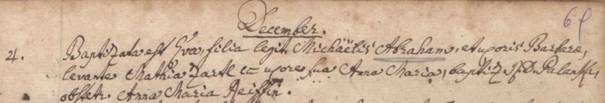 December.
4. Baptizata est Eva, filia legit. Michaëlis Abraham, et uxoris Barbarae,
levante Mathia Zartl et uxore sua Anna Maria, baptiz.
obstetr. Anna Maria Reissin.